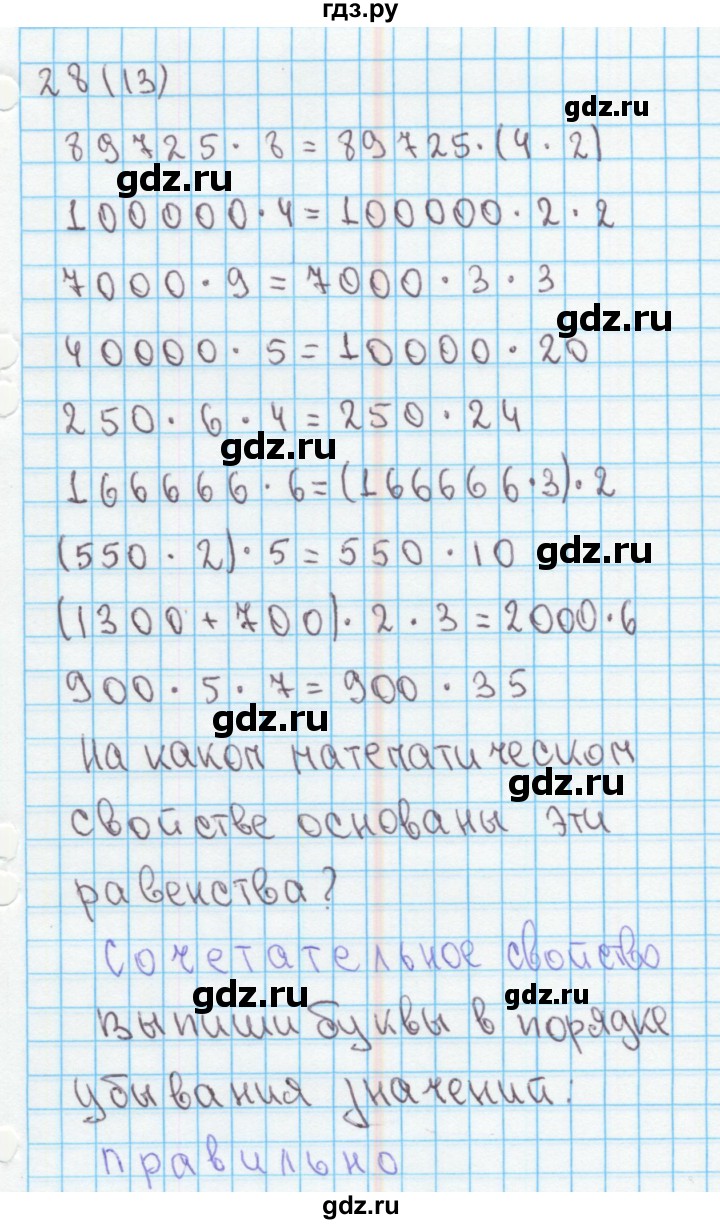 гдз.ру
28(13)
gdz.ru
89725 · 8 = 89725 · (4 · 2)
gdz.ru
100000 · 4 = 100000 · 2 · 2
7000 · 9 = 7000 · 3 · 3
gdz.ru
40000 · 5 = 10000 · 20
250 · 6 · 4 = 250 · 24
gdz.ru
166666 · 6 = (166666 · 3) · 2
(550 · 2) · 5 = 550 · 10 gdz.ru
(1300 + 700) · 2 · 3 = 2000 · 6
900 · 5 · 7 = 900 · 35
gdz.ru
На каком математическом
gdz.ru
свойстве основаны эти
равенства?
сочетательное свойство
gdz.ru gdz.ru
Выпиши буквы в порядке
убывания значений:
правильно
gdz.ru